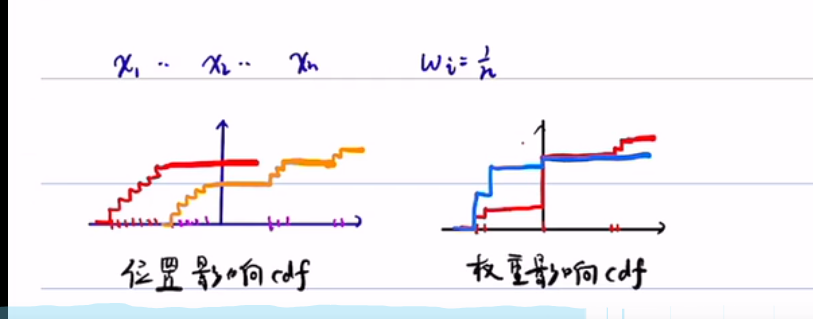 x₁ ·· x₂ ·· xₙ wᵢ = 1/n
位置影响cdf 权重影响cdf